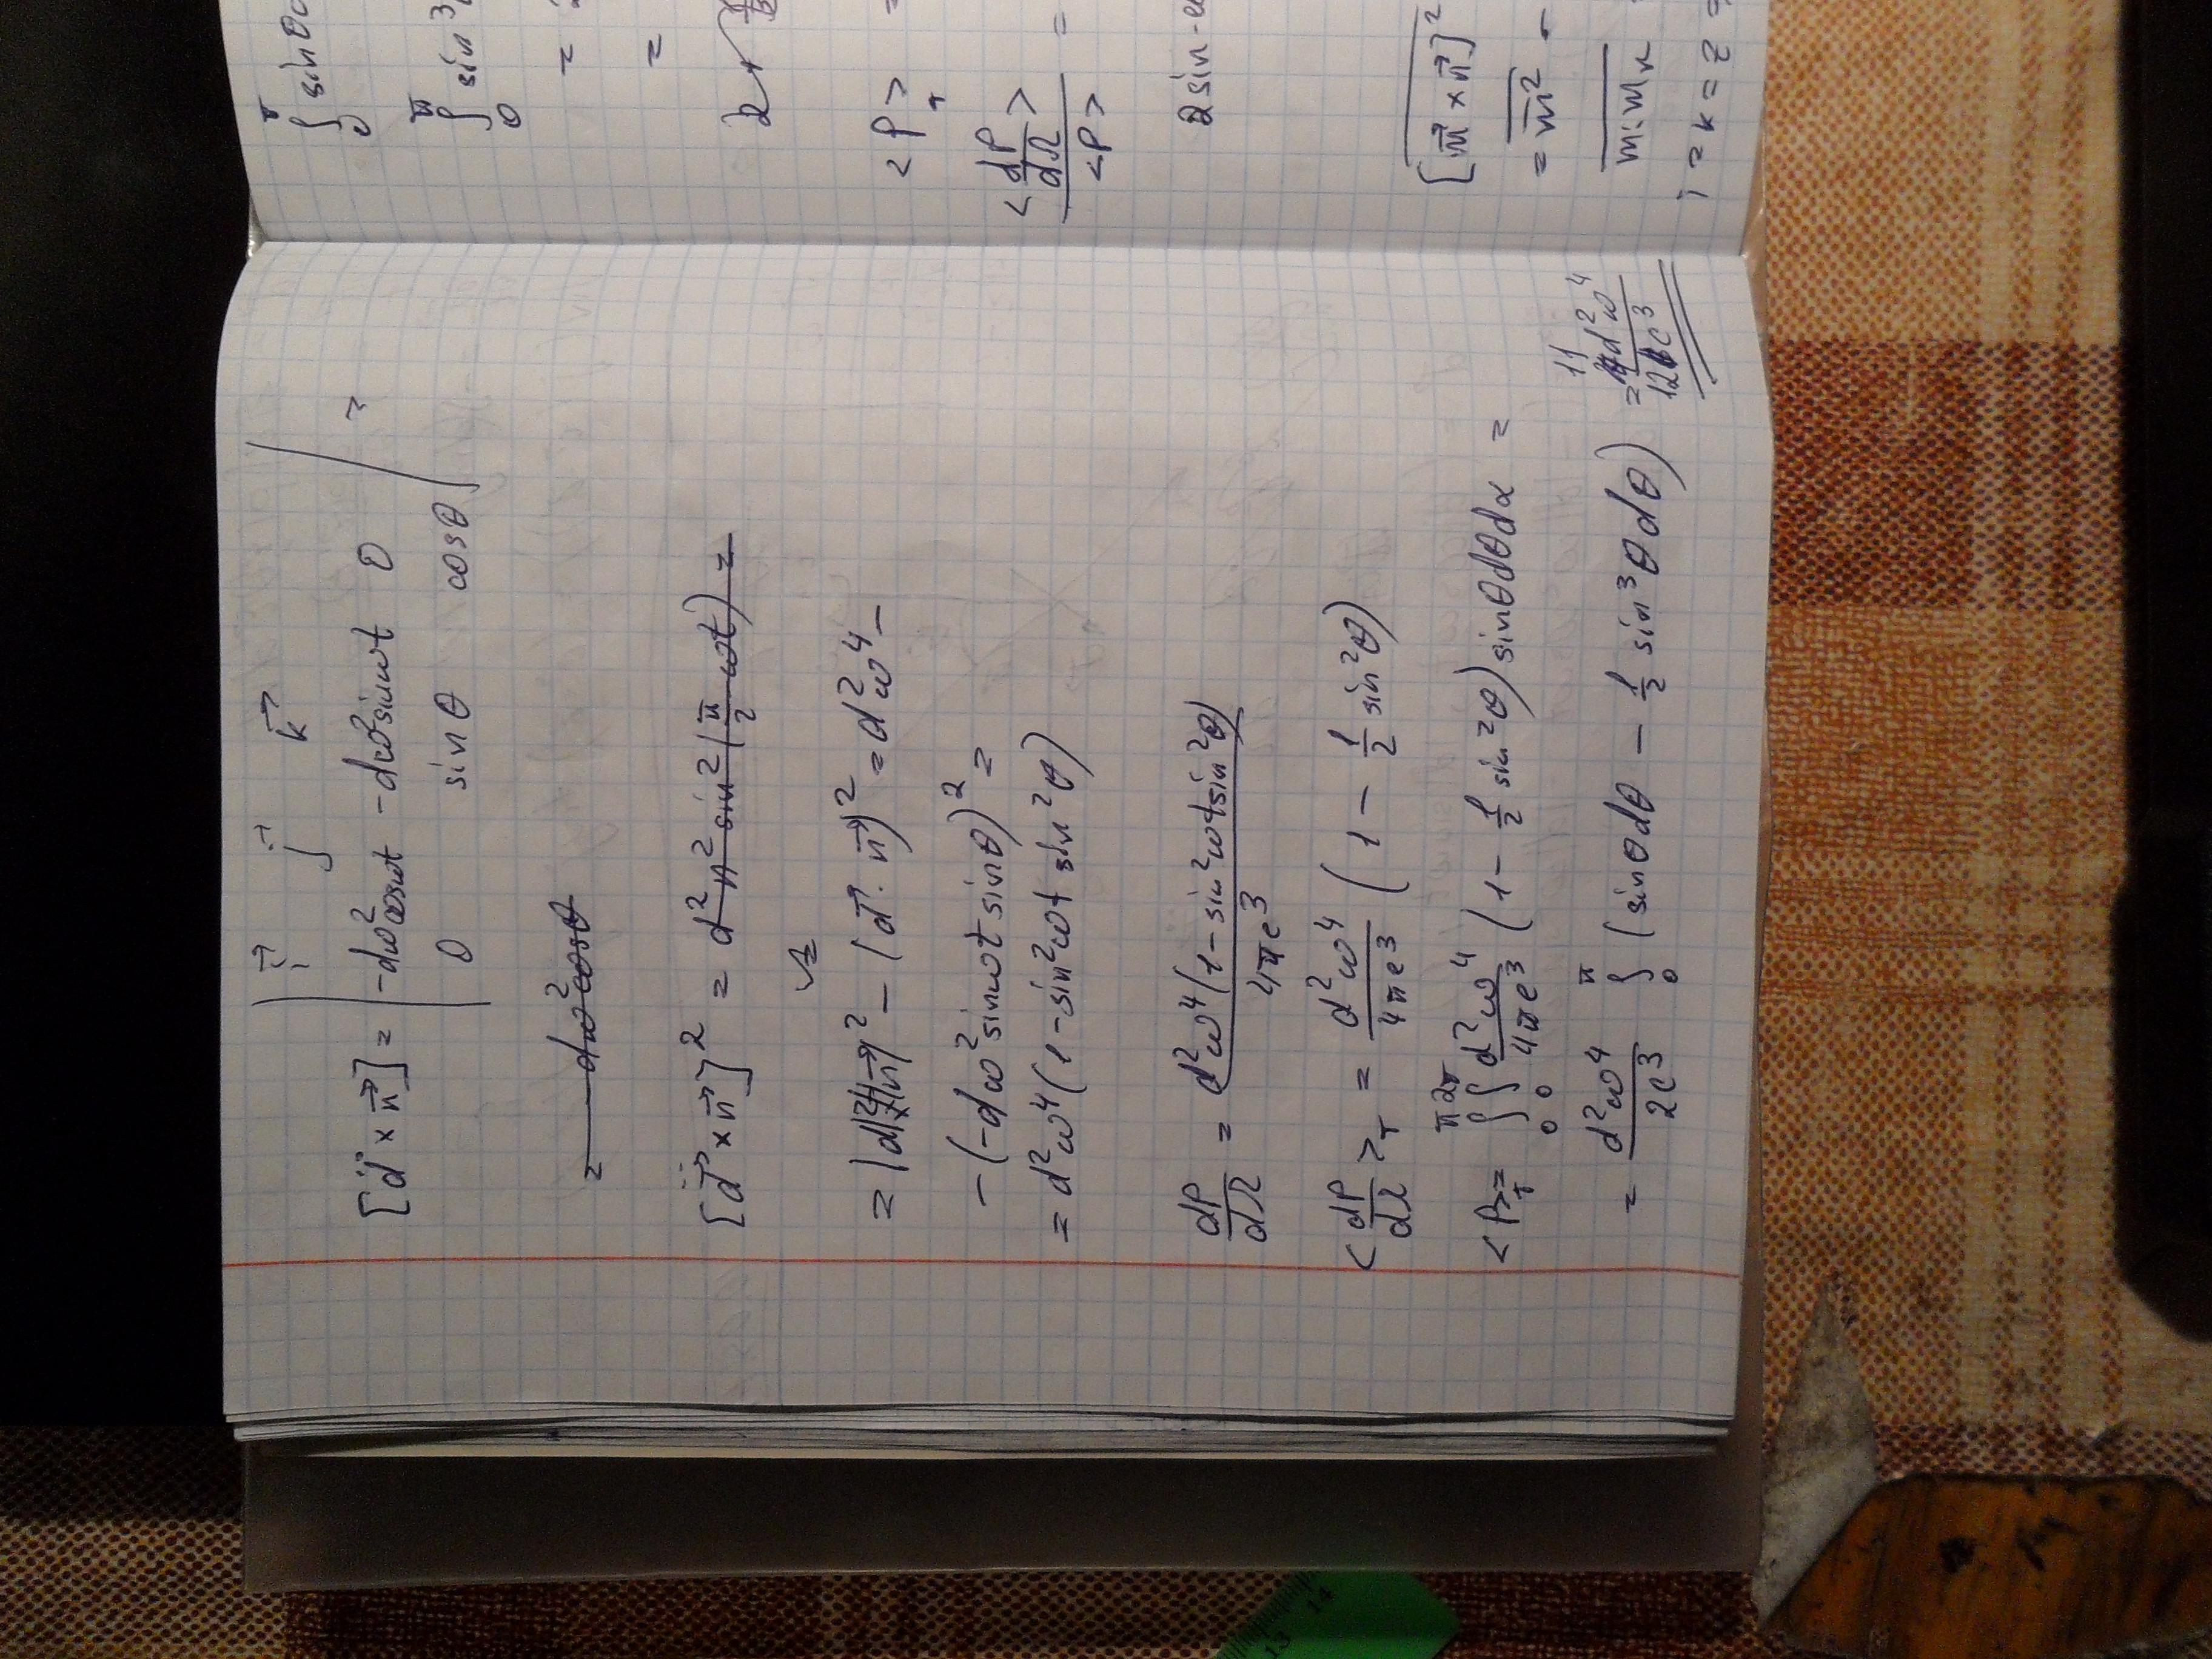 | i⃗ j⃗ k⃗ |
[d̈⃗ × n⃗] = | -dω² cosωt -dω² sinωt 0 | =
| 0 sin θ cos θ |
= dω² cosθ
[d̈⃗ × n⃗]² = d² n² sin² (π/2 - ωt) =
= |d̈|² |n⃗|² - (d̈⃗ · n⃗)² = d² ω⁴ -
- (-dω² sinωt sinθ)² =
= d² ω⁴ (1 - sin² ωt sin² θ)
dP/dΩ = d² ω⁴ (1 - sin² ωt sin² θ) / 4πc³
<dP/dΩ>_T = d² ω⁴ / 4πc³ (1 - 1/2 sin² θ)
<P>_T = ∫₀^π ∫₀^2π d² ω⁴ / 4πc³ (1 - 1/2 sin² θ) sinθ dθ dα =
= d² ω⁴ / 2c³ ∫₀^π (sinθ dθ - 1/2 sin³ θ dθ) = 11 d² ω⁴ / 12 c³
∫₀^π sin θ
∫₀^π sin³
=
=
2
<P>_T =
<dP/dΩ> / <P> =
2 sin
[m⃗ × n⃗]²
= m⃗² -
mᵢmₖ
i = k = z =
13 14